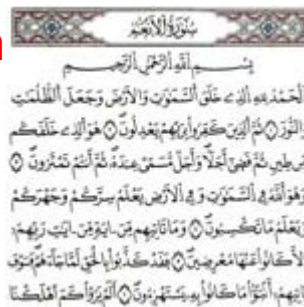 سُورَةُ الْأَنْعَامِ
بِسْمِ اللَّهِ الرَّحْمَٰنِ الرَّحِيمِ
اَلْحَمْدُ لِلهِ الذِے خَلَقَ اَلسَّمَٰوَٰتِ وَالَارْضَ وَجَعَلَ اَلظُّلُمَٰتِ
وَالنُّورَ ثُمَّ اَلذِينَ كَفَرُواْ بِرَبِّهِمْ يَعْدِلُونَ هُوَ اَلذِے خَلَقَكُم
مِّن طِينٍ ثُمَّ قَض۪ىٰٓ أَجَلٗا وَأَجَلٞ مُّسَمًّى عِندَهُۥ ثُمَّ أَنتُمْ تَمْتَرُونَ
وَهُوَ اَللَّهُ فِے اِلسَّمَٰوَٰتِ وَفِے اِلَارْضِ يَعْلَمُ سِرَّكُمْ وَجَهْرَكُمْ
وَيَعْلَمُ مَا تَكْسِبُونَ وَمَا تَاتِيهِم مِّنَ اٰيَةٖ مِّنَ اٰيَٰتِ رَبِّهِمُۥٓ
إِلَّا كَانُواْ عَنْهَا مُعْرِضِينَ فَقَدْ كَذَّبُواْ بِالْحَقِّ لَمَّا جَآءَهُمْ فَسَوْفَ
يَاتِيهِمُۥٓ أَنۢبَٰٓؤُاْ مَا كَانُواْ بِهِۦ يَسْتَهْزِءُونَ أَلَمْ يَرَوْاْ كَمَ اَهْلَكْنَا